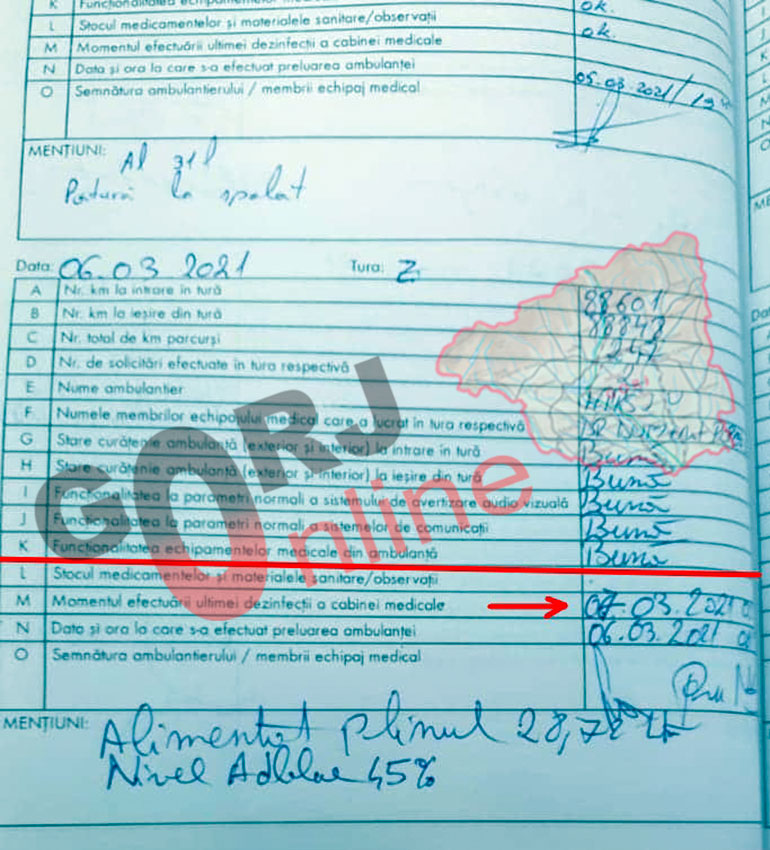 K Funcționalitatea echipamentelor medicale ok.
L Stocul medicamentelor și materialele sanitare/observații ok.
M Momentul efectuării ultimei dezinfecții a cabinei medicale
N Data și ora la care s-a efectuat preluarea ambulanței 05.03.2021/19
O Semnătura ambulantierului / membrii echipaj medical
MENȚIUNI: Al 31 l
Patură la spalat
Data: 06.03 2021 Tura: Z
A Nr. km la intrare în tură 88601
B Nr. km la ieșire din tură 88848
C Nr. total de km parcurși 247
D Nr. de solicitări efectuate în tura respectivă
E Nume ambulantier
F Numele membrilor echipajului medical care a lucrat în tura respectivă DR
G Stare curățenie ambulanță (exterior și interior) la intrare în tură Bună
H Stare curățenie ambulanță (exterior și interior) la ieșire din tură Bună
I Funcționalitatea la parametri normali a sistemului de avertizare audio vizuală Bună
J Funcționalitatea la parametri normali a sistemelor de comunicații Bună
K Funcționalitatea echipamentelor medicale din ambulanță Bună
L Stocul medicamentelor și materialele sanitare/observații
M Momentul efectuării ultimei dezinfecții a cabinei medicale 07.03.2021
N Data și ora la care s-a efectuat preluarea ambulanței 06.03.2021
O Semnătura ambulantierului / membrii echipaj medical
MENȚIUNI: Alimentat plinul 28,78
Nivel Adblue 45%
GORJ
Online